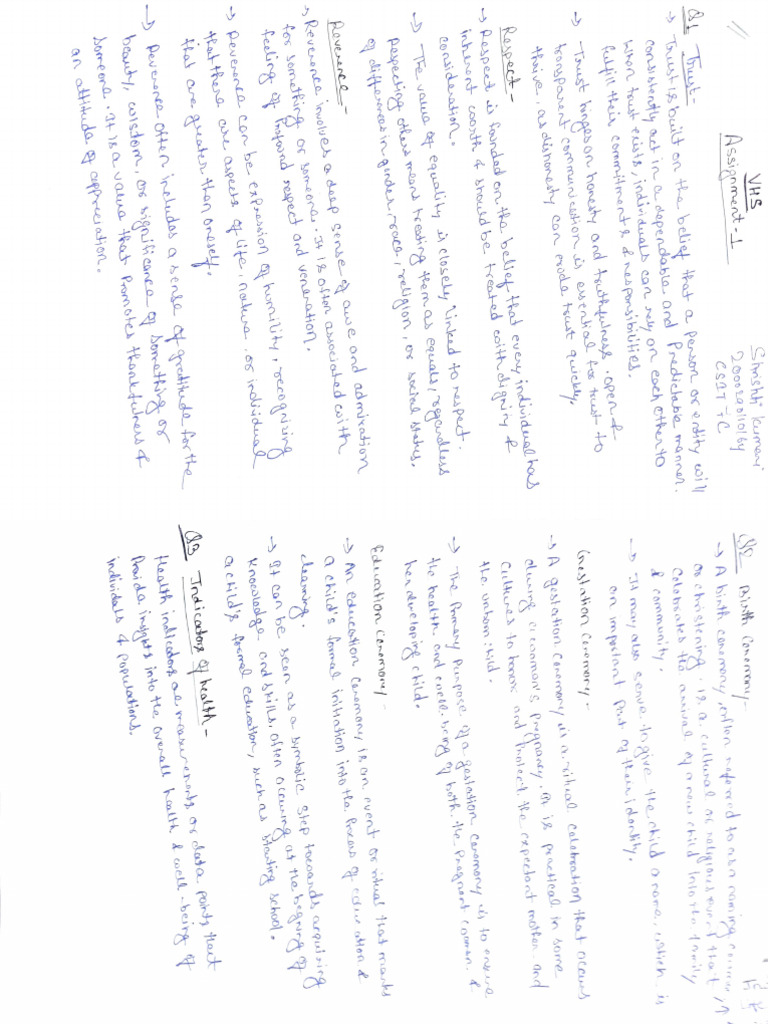 VHS
Assignment-1
Shrishti Kumari
CSIT-C
Q1 Trust-
→ Trust is built on the belief that a person or entity will
consistently act in a dependable and predictable manner.
when trust exists, individuals can rely on each other to
fulfill their commitments & responsibilities.
→ Trust hinges on honesty and truthfulness. open &
transparent communication is essential for trust to
thrive, as dishonesty can erode trust quickly.
Respect-
→ Respect is founded on the belief that every individual has
inherent worth & should be treated with dignity &
consideration.
→ The value of equality is closely linked to respect.
Respecting others means treating them as equals, regardless
of differences in gender, race, religion, or social status.
Reverence-
→ Reverence involves a deep sense of awe and admiration
for something or someone. It is often associated with
feeling of profound respect and veneration.
→ Reverence can be expression of humility, recognizing
that there are aspects of life, nature, or individual
that are greater than oneself.
→ Reverence often includes a sense of gratitude for the
beauty, wisdom, or significance of something or
someone. It is a value that Promotes thankfulness &
an attitude of appreciation.
Q2 Birth Ceremony-
→ A birth ceremony, often referred to as a naming
or christening. is a cultural or religious event that
celebrates the arrival of a new child into the family
& community.
→ It may also serve to give the child a name, which is
an important part of their identity.
Gestation Ceremony-
→ A gestation ceremony is a ritual celebration that occurs
during a woman's pregnancy. It is practical in some
cultures to honor and protect the expectant mother and
the unborn child.
→ The Primary Purpose of a gestation ceremony is to ensure
the health and well-being of both the pregnant woman &
her developing child.
Education Ceremony-
→ An education ceremony is an event or ritual that marks
a child's formal initiation into the Process of education &
learning.
→ It can be seen as a symbolic step towards acquiring
knowledge and skills, often occuring at the begning of
a child's formal education, such as starting school.
Q3 Indicators of health-
Health indicators are measurements or data points that
Provide insights into the overall health & well-being of
individuals & populations.